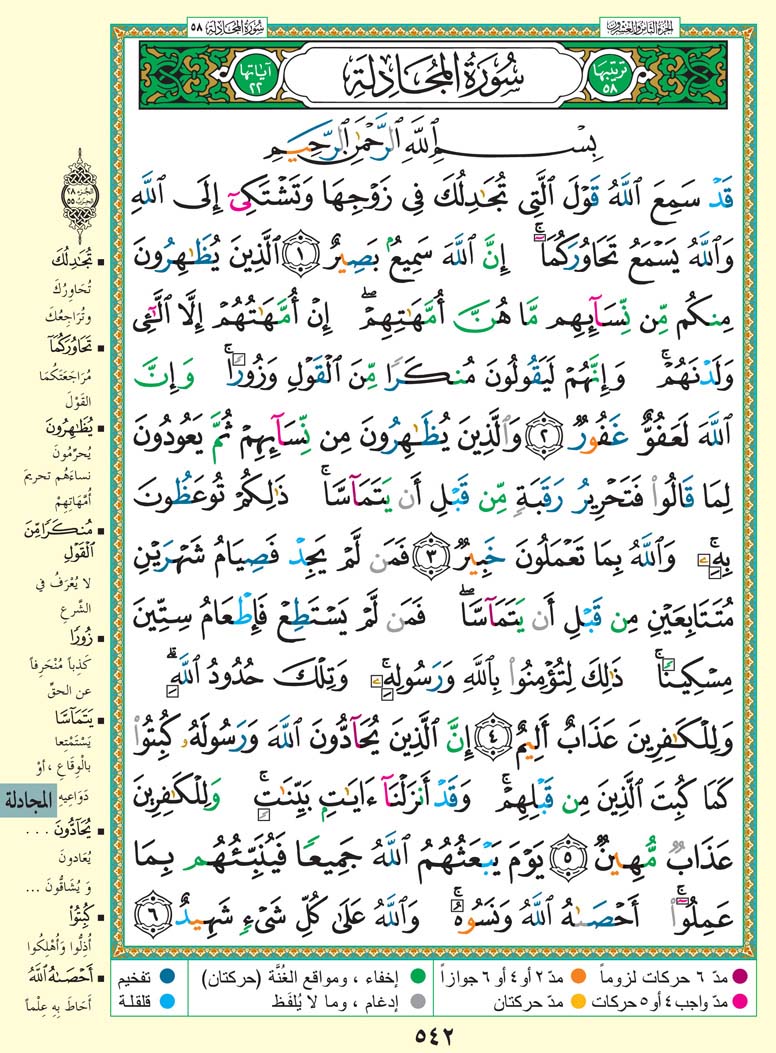 سُورَةُ المُجَادلة ٥٨
الجزء الثامن والعشرون
ترتيبها ٥٨
سُورَةُ المُجَادلة
آياتها ٢٢
بِسْمِ ٱللَّهِ ٱلرَّحْمَٰنِ ٱلرَّحِيمِ
قَدْ سَمِعَ ٱللَّهُ قَوْلَ ٱلَّتِى تُجَٰدِلُكَ فِى زَوْجِهَا وَتَشْتَكِىٓ إِلَى ٱللَّهِ
وَٱللَّهُ يَسْمَعُ تَحَاوُرَكُمَآ ۚ إِنَّ ٱللَّهَ سَمِيعٌۢ بَصِيرٌ ١ ٱلَّذِينَ يُظَٰهِرُونَ
مِنكُم مِّن نِّسَآئِهِم مَّا هُنَّ أُمَّهَٰتِهِمْ ۖ إِنْ أُمَّهَٰتُهُمْ إِلَّا ٱلَّٰٓـِٔى
وَلَدْنَهُمْ ۚ وَإِنَّهُمْ لَيَقُولُونَ مُنكَرًا مِّنَ ٱلْقَوْلِ وَزُورًا ۚ وَإِنَّ
ٱللَّهَ لَعَفُوٌّ غَفُورٌ ٢ وَٱلَّذِينَ يُظَٰهِرُونَ مِن نِّسَآئِهِمْ ثُمَّ يَعُودُونَ
لِمَا قَالُوا۟ فَتَحْرِيرُ رَقَبَةٍ مِّن قَبْلِ أَن يَتَمَآسَّا ۚ ذَٰلِكُمْ تُوعَظُونَ
بِهِۦ ۚ وَٱللَّهُ بِمَا تَعْمَلُونَ خَبِيرٌ ٣ فَمَن لَّمْ يَجِدْ فَصِيَامُ شَهْرَيْنِ
مُتَتَابِعَيْنِ مِن قَبْلِ أَن يَتَمَآسَّا ۖ فَمَن لَّمْ يَسْتَطِعْ فَإِطْعَامُ سِتِّينَ
مِسْكِينًا ۚ ذَٰلِكَ لِتُؤْمِنُوا۟ بِٱللَّهِ وَرَسُولِهِۦ ۚ وَتِلْكَ حُدُودُ ٱللَّهِ ۗ
وَلِلْكَٰفِرِينَ عَذَابٌ أَلِيمٌ ٤ إِنَّ ٱلَّذِينَ يُحَآدُّونَ ٱللَّهَ وَرَسُولَهُۥ كُبِتُوا۟
كَمَا كُبِتَ ٱلَّذِينَ مِن قَبْلِهِمْ ۚ وَقَدْ أَنزَلْنَآ ءَايَٰتٍۭ بَيِّنَٰتٍ ۚ وَلِلْكَٰفِرِينَ
عَذَابٌ مُّهِينٌ ٥ يَوْمَ يَبْعَثُهُمُ ٱللَّهُ جَمِيعًا فَيُنَبِّئُهُم بِمَا
عَمِلُوٓا۟ ۚ أَحْصَىٰهُ ٱللَّهُ وَنَسُوهُ ۚ وَٱللَّهُ عَلَىٰ كُلِّ شَىْءٍ شَهِيدٌ ٦
الجزء ٢٨
الحزب ٥٥
تُجَٰدِلُكَ
تُحَاوِرُكَ
وتُرَاجِعُكَ
تَحَاوُرَكُمَآ
مُرَاجَعَتَكُمَا
القَوْلَ
يُظَٰهِرُونَ
يُحرِّمُونَ
نساءَهُم تحريمَ
أُمَّهَاتِهِمْ
مُنكَرًا مِّنَ
ٱلْقَوْلِ
لا يُعْرَفُ في
الشَّرعِ
زُورًا
كَذِباً مُنْحَرِفاً
عن الحقِّ
يَتَمَآسَّا
يَسْتَمْتِعا
بالْوِقَاعِ ، أوْ
دَوَاعِيهِ
المجادلة
يُحَآدُّونَ ...
يُعَادونَ
وَ يُشَاقُّونَ ...
كُبِتُوا۟
أُذِلُّوا وَأُهْلِكُوا
أَحْصَىٰهُ ٱللَّهُ
أَحَاطَ بِهِ عِلْماً
مدّ ٦ حركات لزوماً
مدّ ٢ أو ٤ أو ٦ جوازاً
إخفاء ، ومواقع الغُنَّة (حركتان)
تفخيم
مدّ واجب ٤ أو ٥ حركات
مدّ حركتان
إدغام ، وما لا يُلفَظ
قلقلة
٥٤٢